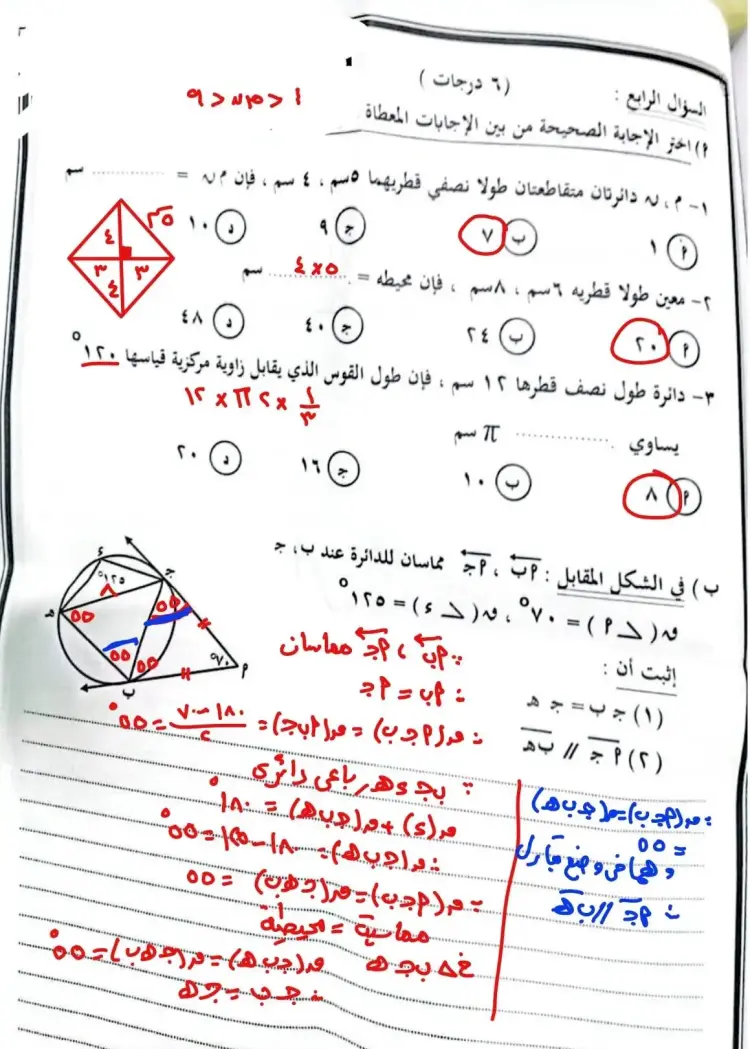 السؤال الرابع : (٦ درجات )
١ < م ن < ٩
أ) اختر الإجابة الصحيحة من بين الإجابات المعطاة
١- م ، ن دائرتان متقاطعتان طولا نصفي قطريهما ٥سم ، ٤ سم ، فإن م ن = ............ سم
أ ١ ب ٧ ج ٩ د ١٠
٢- معين طولا قطريه ٦سم ، ٨سم ، فإن محيطه = ............ سم
٥ × ٤
أ ٢٠ ب ٢٤ ج ٤٠ د ٤٨
٤ ٢٥ ٣ ٣ ٤
٣- دائرة طول نصف قطرها ١٢ سم ، فإن طول القوس الذي يقابل زاوية مركزية قياسها ١٢٠°
١/٣ × ٢ π × ١٢
يساوي ............ π سم
أ ٨ ب ١٠ ج ١٦ د ٢٠
ب) في الشكل المقابل : أب ، أج مماسان للدائرة عند ب ، ج
ق (∠ أ) = ٧٠° ، ق (∠ ء) = ١٢٥°
إثبت أن :
(١) ج ب = ج هـ
(٢) أج // ب هـ
ء ١٢٥° ج هـ ٥٥ ٥٥ ٥٥ ٥٥ ٧٠° أ ب
∵ أب ، أج مماسان
∴ أب = أج
∴ ق(أجب) = ق(أبج) = (١٨٠ - ٧٠)/٢ = ٥٥°
∵ بجءهـ رباعى دائرى
ق(ء) + ق(جبهـ) = ١٨٠°
∴ ق(جبهـ) = ١٨٠ - ١٢٥ = ٥٥°
∴ ق(أجب) = ق(جهـب) = ٥٥
مماسية = محيطية
فى Δ بجهـ ق(جبهـ) = ق(جهـب) = ٥٥°
∴ جب = جهـ
∵ ق(أجب) = ق(جبهـ)
= ٥٥
وهما فى وضع تبادل
∴ أج // بهـ